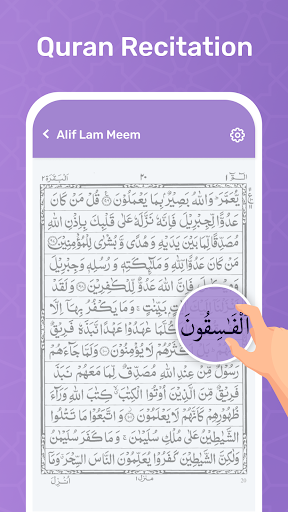 Quran Recitation
Alif Lam Meem
الٓمّٓ ١ ٣٠ اَلْبَقَرَة ٢
يُّعَمَّرَ ؕ وَاللّٰهُ بَصِيْرٌۢ بِمَا يَعْمَلُوْنَ ۝ قُلْ مَنْ كَانَ
عَدُوًّا لِّجِبْرِيْلَ فَاِنَّهٗ نَزَّلَهٗ عَلٰى قَلْبِكَ بِاِذْنِ اللّٰهِ
مُصَدِّقًا لِّمَا بَيْنَ يَدَيْهِ وَهُدًى وَّبُشْرٰى لِلْمُؤْمِنِيْنَ ۝
مَنْ كَانَ عَدُوًّا لِّلّٰهِ وَمَلٰٓئِكَتِهٖ وَرُسُلِهٖ وَجِبْرِيْلَ
وَمِيْكٰىلَ فَاِنَّ اللّٰهَ عَدُوٌّ لِّلْكٰفِرِيْنَ ۝ وَلَقَدْ
اَنْزَلْنَاۤ اِلَيْكَ اٰيٰتٍۭ بَيِّنٰتٍ ۚ وَمَا يَكْفُرُ بِهَاۤ اِلَّا
الْفٰسِقُوْنَ
اَوَكُلَّمَا عٰهَدُوْا عَهْدًا نَّبَذَهٗ فَرِيْقٌ
مِّنْهُمْ ؕ بَلْ اَكْثَرُهُمْ لَا يُؤْمِنُوْنَ ۝ وَلَمَّا جَآءَهُمْ
رَسُوْلٌ مِّنْ عِنْدِ اللّٰهِ مُصَدِّقٌ لِّمَا مَعَهُمْ نَبَذَ
فَرِيْقٌ مِّنَ الَّذِيْنَ اُوْتُوا الْكِتٰبَ ۙ كِتٰبَ اللّٰهِ وَرَآءَ
ظُهُوْرِهِمْ كَاَنَّهُمْ لَا يَعْلَمُوْنَ ۝ وَاتَّبَعُوْا مَا تَتْلُوا
الشَّيٰطِيْنُ عَلٰى مُلْكِ سُلَيْمٰنَ ۚ وَمَا كَفَرَ سُلَيْمٰنُ
وَلٰكِنَّ الشَّيٰطِيْنَ كَفَرُوْا يُعَلِّمُوْنَ النَّاسَ السِّحْرَ ۗ وَمَاۤ
اُنْزِلَ منزل ١ 30